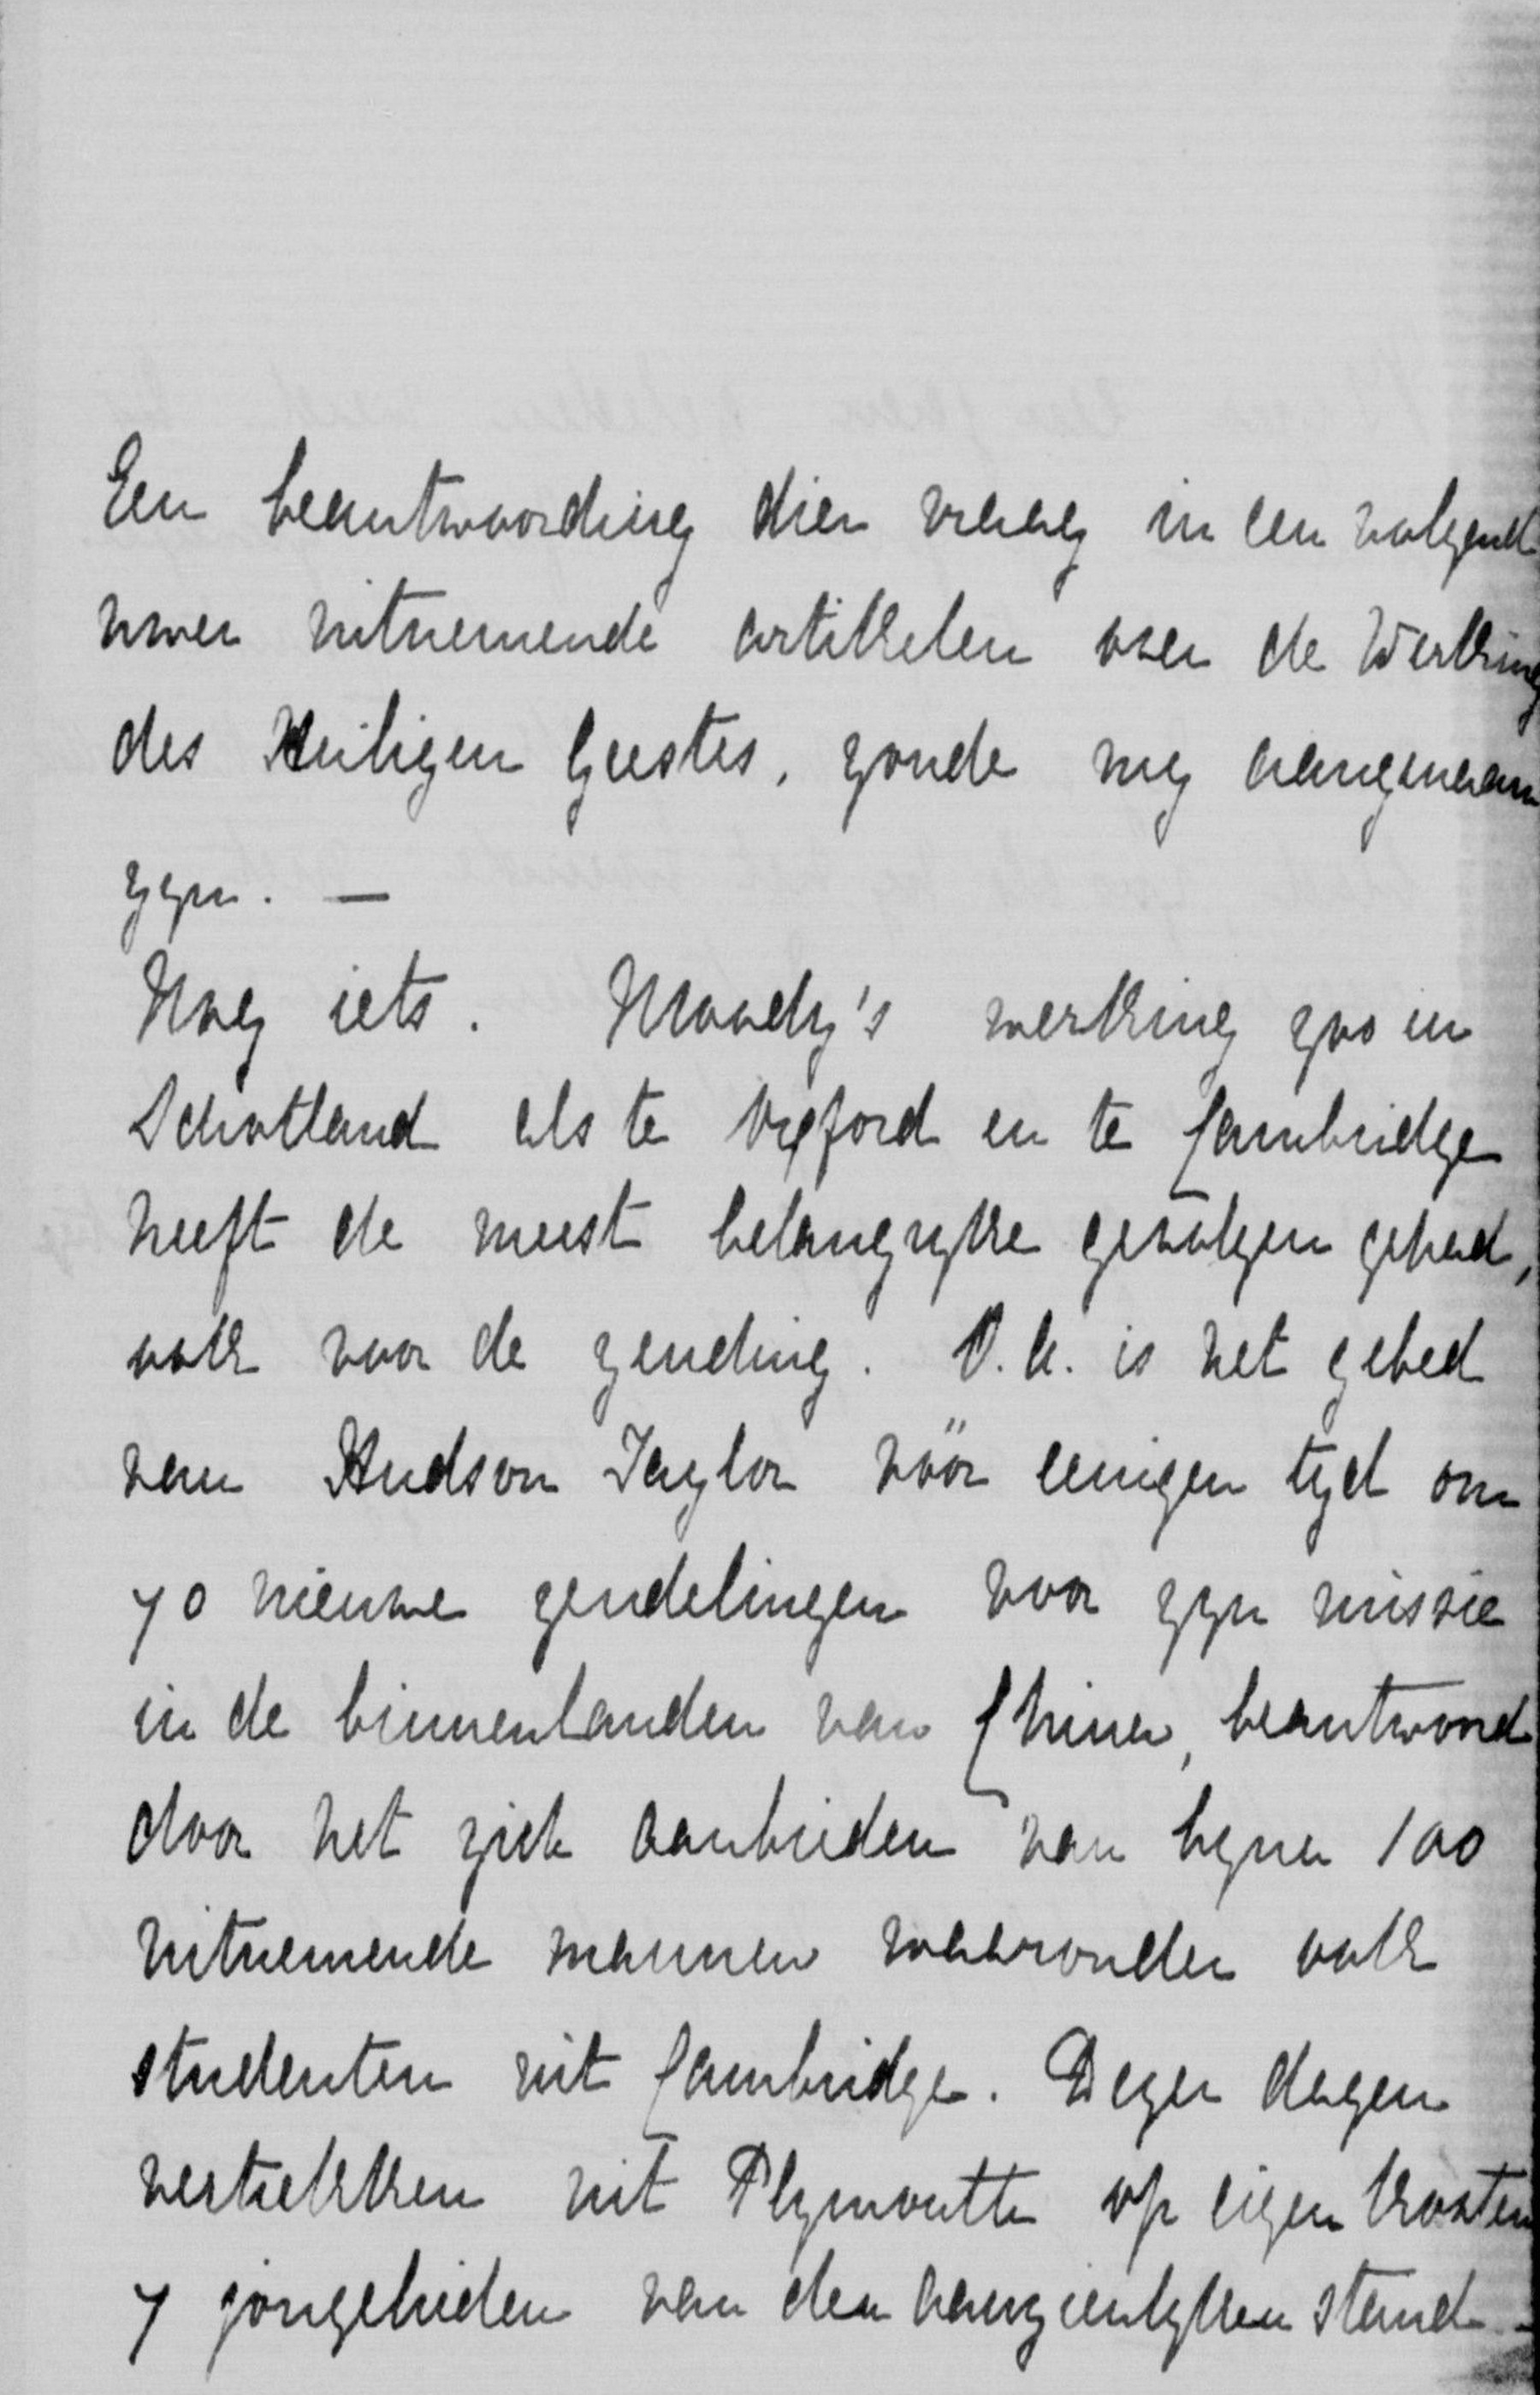 Een beantwoording dier vraag in een volgend
uwer uitnemende artikelen over de Werking
des Heiligen Geestes, zoude my aangenaam
zyn. —
Nog iets. Moody's werking zoo in
Schotland als te Oxford en te Cambridge
heeft de meest belangryke gevolgen gehad,
ook voor de zending. O.a. is het gebed
van Hudson Taylor vóór eenigen tyd om
70 nieuwe zendelingen voor zyn missie
in de binnenlanden van China, beantwoord
door het zich aanbieden van byna 100
uitnemende mannen waaronder ook
studenten uit Cambridge. Dezer dagen
vertrekken uit Plymouth op eigen kosten
7 jongelieden van den aanzienlyken stand -